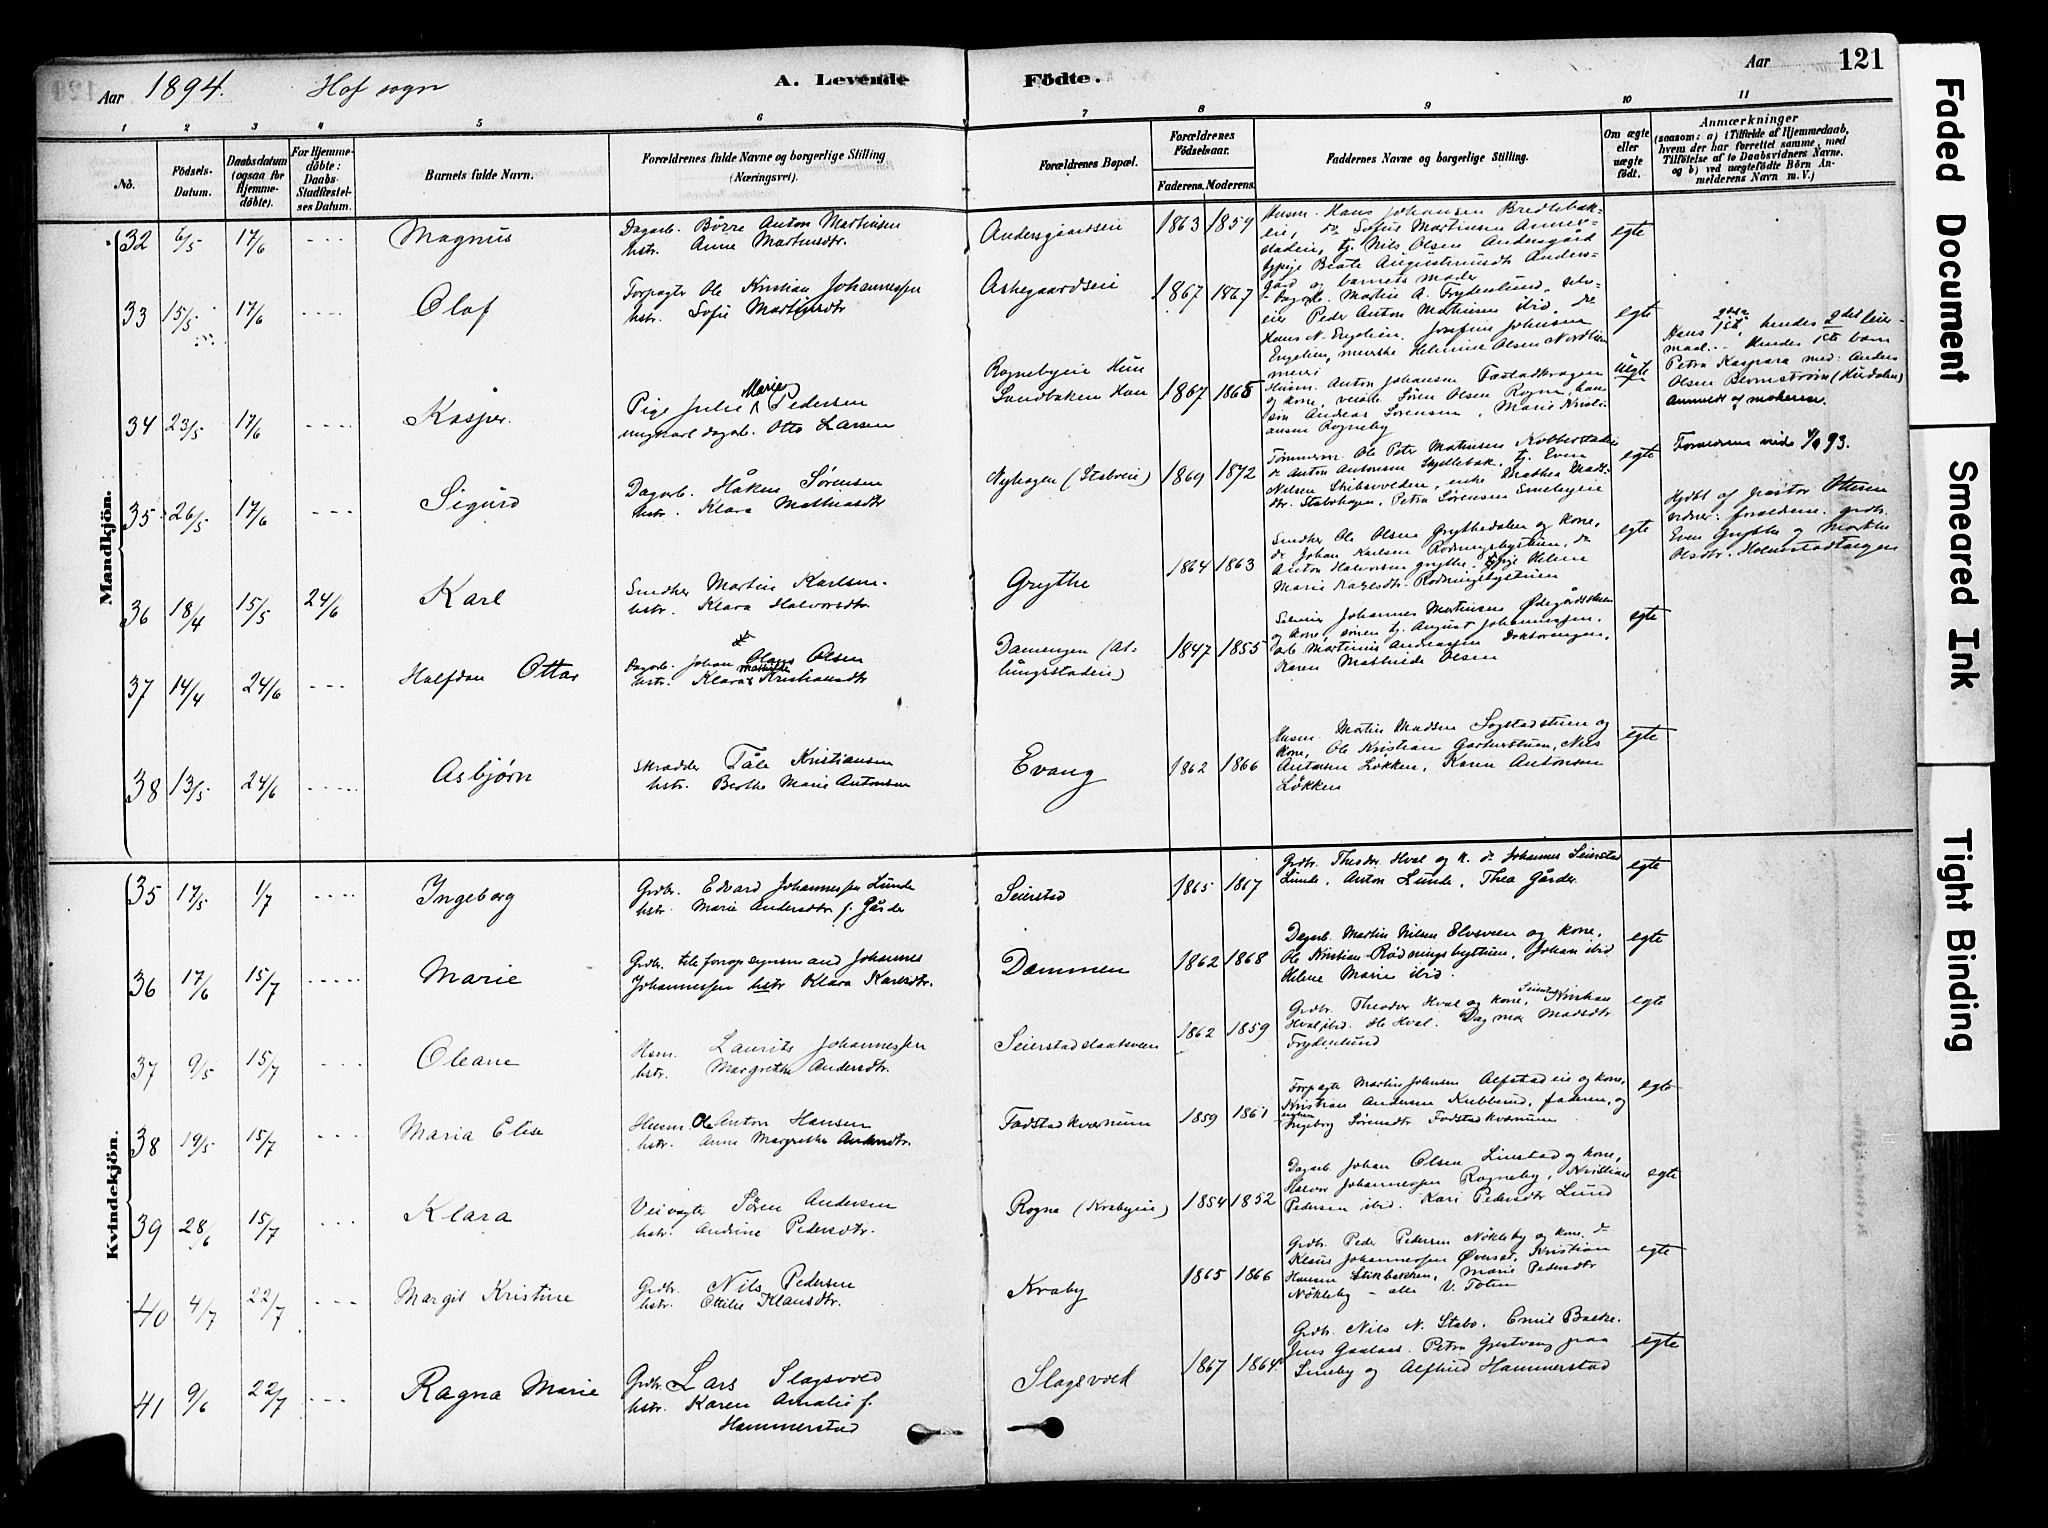 Aar 1894. Hof sogn A. Levende Födte. Aar 121
1 2 3 4 5 6 7 8 9 10 11
No. Födsels-Datum. Daabsdatum (ogsaa for Hjemmedöbte). For Hjemmedöbte: Daabs Stadfæstelses Datum. Barnets fulde Navn. Forældrenes fulde Navne og borgerlige Stilling (Næringsvei). Forældrenes Bopæl. Forældrenes Födselsaar. Faderens. Moderens. Faddernes Navne og borgerlige Stilling. Om ægte eller uægte födt. Anmærkninger (saasom: a) i Tilfælde af Hjemmedaab, hvem der har forrettet samme, med Tilföielse af to Daabsvidners Navne. og b) ved uægtefödte Börn Anmelderens Navn m. V.)
Mandkjön.
32 6/5 17/6 Magnus
Dagarb. Börre Anton Martinsen
hstr. Anne Martinsdtr.
Andersgaardseie 1863 1859
Husm. Hans Johansen Bredlebak-
eie, do Sofus Martinsen
tj. Nils Olsen Andersgård
pige Beate Augustinusdtr Anders-
gård og barnets moder
egte
33 15/5 17/6 Olaf
Forpagter Ole Kristian Johannessen
hstr. Sofie Martinsdtr
Askegaardseie 1867 1867
Dagarb. Martin A. Frydenlund, selv-
eier Peder Anton Mathisen ibid, do
Hans N. Engelien, Josefine Johnsen
Engelien, meierske Helmine Olsen Nordlien
meieri
egte
34 23/5 17/6 Kasper.
Pige Julie Marie Pedersen
ungkarl dagarb. Otto Larsen
Rognebyeie Hun
Sandbakken Han
1867 1865
Husm. Anton Johansen Fæstadkragen
og kone, veivogter Søren Olsen Rogne, hans
søn Andreas Sørensen, Marie Kristi-
ansen Rogneby
Uegte
Hans 1ste, hendes 2det leier-
maal. Hendes 1ste barn
Petra Kaspara med: Anders
Olsen Bernstrøm (Hurdalen)
Anmeldt af moderen.
35 26/5 17/6 Sigurd
Dagarb. Håken Sørensen
hstr. Klara Mathiasdtr
Nyhagen (Stabveie) 1869 1872
Tømmerm. Ole Peter Mathisen Kobberstadeie
do Anton Antonsen Skjellebæk, tj. Even
Nilsen Skibsveden, enke Drothea Mads-
dtr. Stabohagen, Petra Sørensen Smebyeie
egte
Forældrene viede 93.
36 18/4 15/5 24/6 Karl
Snedker Martin Karlsen.
hstr. Klara Halvorsdtr.
Grythe 1864 1863
Snedker Ole Olsen Grythedalen og kone,
do Johan Karlsen Rødningsbystuen, do
Anton Halvorsen Grythe, pige Helene
Marie Karlsdtr. Rødningsbystuen
egte
Hjdbt af pastor Ottesen
vidner: forældrene. grdbr.
Even Grythe og Marthe
Olsdtr. Holmstadengen
37 14/4 24/6 Halfdan Ottar
Dagarb. Johan Olaus Olsen
hstr. Klara Mathilde Kristiansdtr
Damengen (Al-
lungstadeie)
1847 1855
Selveier Johannes Martinsen Ødegårdsstuen
og kone, sønen tj. August Johannessen,
Ole Martinus Andreassen Doktorengen,
Karen Mathilde Olsen
egte
38 13/5 24/6 Asbjørn
Skrædder Tåle Kristiansen
hstr. Berthe Marie Antonsen
Evang 1862 1866
Husm. Martin Madsen Sogstadstuen og
kone, Ole Kristian Gaarderstuen, Nils
Antonsen Løkken, Karen Antonson
Løkken
egte
Kvindekjön.
35 17/5 1/7 Ingeborg
Grdbr. Edvard Johannessen Lunde
hstr. Marie Andersdtr f. Gårder
Seierstad 1865 1867
Grdbr. Theodor Hval og K. do Johannes Seierstad
Lunde, Anton Lunde, Thea Gårder.
egte
36 17/6 15/7 Marie
Grdbr. telefonopsynsmand Johannes
Johannessen hstr Klara Karlsdtr.
Dammen 1862 1868
Dagarb. Martin Nilsen Elvsveen og kone,
Ole Kristian Rødningsbystuen, Johan ibid
Helene Marie ibid.
egte
37 9/5 15/7 Oleane
Hsm. Laurits Johannessen
hstr. Margrethe Andersdtr.
Seierstadslaatsveen 1862 1859
Grdbr. Theodor Hval og kone, Seierstad Kristian
Hval ibid. Ole Hval. Dagmar Madsdtr
Frydenlund
egte
38 19/5 15/7 Maria Elise
Husm. Ole Anton Hansen
hstr. Anne Margrethe Andersdtr.
Fodstadkværnum 1859 1861
Forpagter Martin Johnsen Alfstadeie og kone,
Kristian Andersen Kubberud, faderen, og
Ingeborg Sørensdtr Fodstadkværnum
egte
39 28/6 15/7 Klara
Veivogter Sören Andersen
hstr. Andrine Pedersdtr.
Rogna (Krabyeie) 1854 1852
Dagarb. Johan Olsen Linstad og kone,
Halvor Johannessen Rogneby, Kristiane
Pedersen ibid. Kari Pedersdtr Lund
egte
40 4/7 22/7 Margit Kristine
Grdbr. Nils Pedersen
hstr. Ottilie Klausdtr.
Kraby 1865 1866
Grdbr. Peder Pedersen Nøkleby og kone. do
Klaus Johannessen Øversæt, Kristian
Hansen Stikbakken, Marie Pedersdtr
Nökleby – alle V. Toten
egte
41 9/6 22/7 Ragna Marie
Grdbr. Lars Slagsvold
hstr. Karen Amalie f.
Hammerstad
Slagsvold 1867 1864
Grdbr. Nils N. Stabo. Emil Bakke.
Jens Gaalaas. Petra Grestvang paa
Smeby og Alfhild Hammerstad
egte
Faded Document
Smeared Ink
Tight Binding